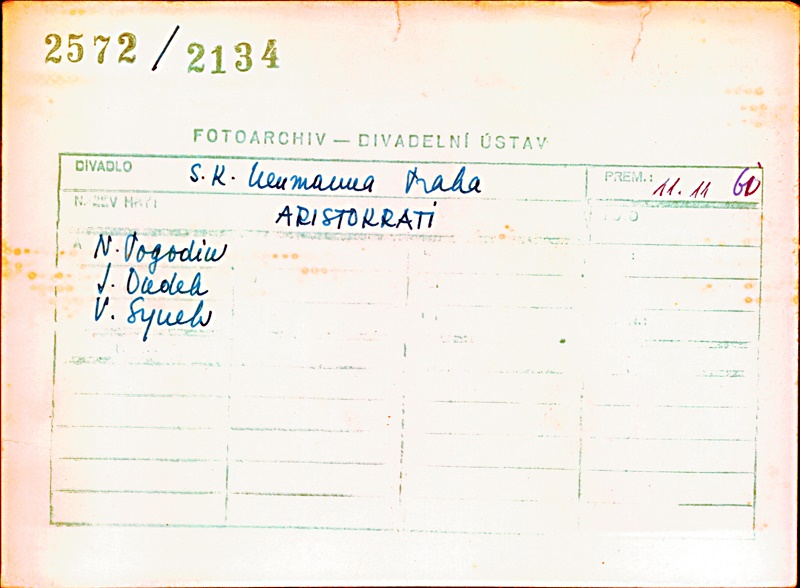 2572 / 2134
FOTOARCHIV — DIVADELNÍ ÚSTAV
DIVADLO S. K. Neumanna Praha PREM.: 11. 11 60
NÁZEV HRY: ARISTOKRATI FOTO
N. Pogodin
J. Dudek
V. Synek